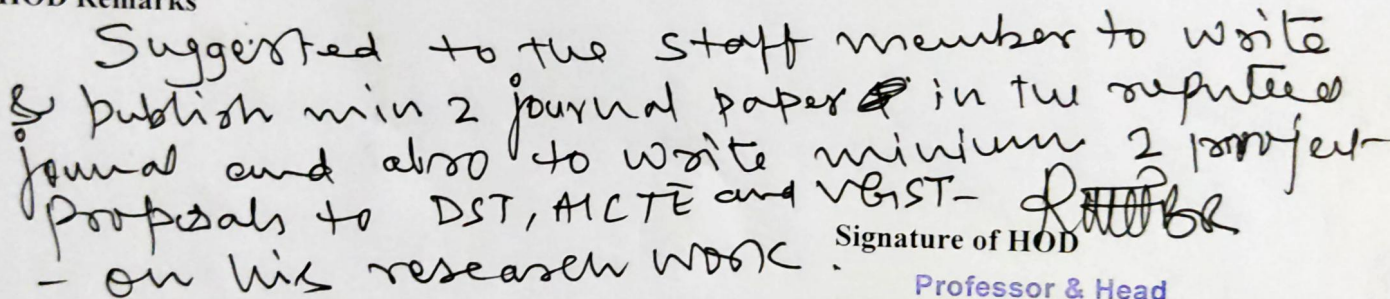 HOD Remarks
Suggested to the staff member to write
& publish min 2 journal paper in the reputed
journal and also to write minium 2 project
proposals to DST, AICTE and VGST-
- on his research work.
Signature of HOD
Professor & Head